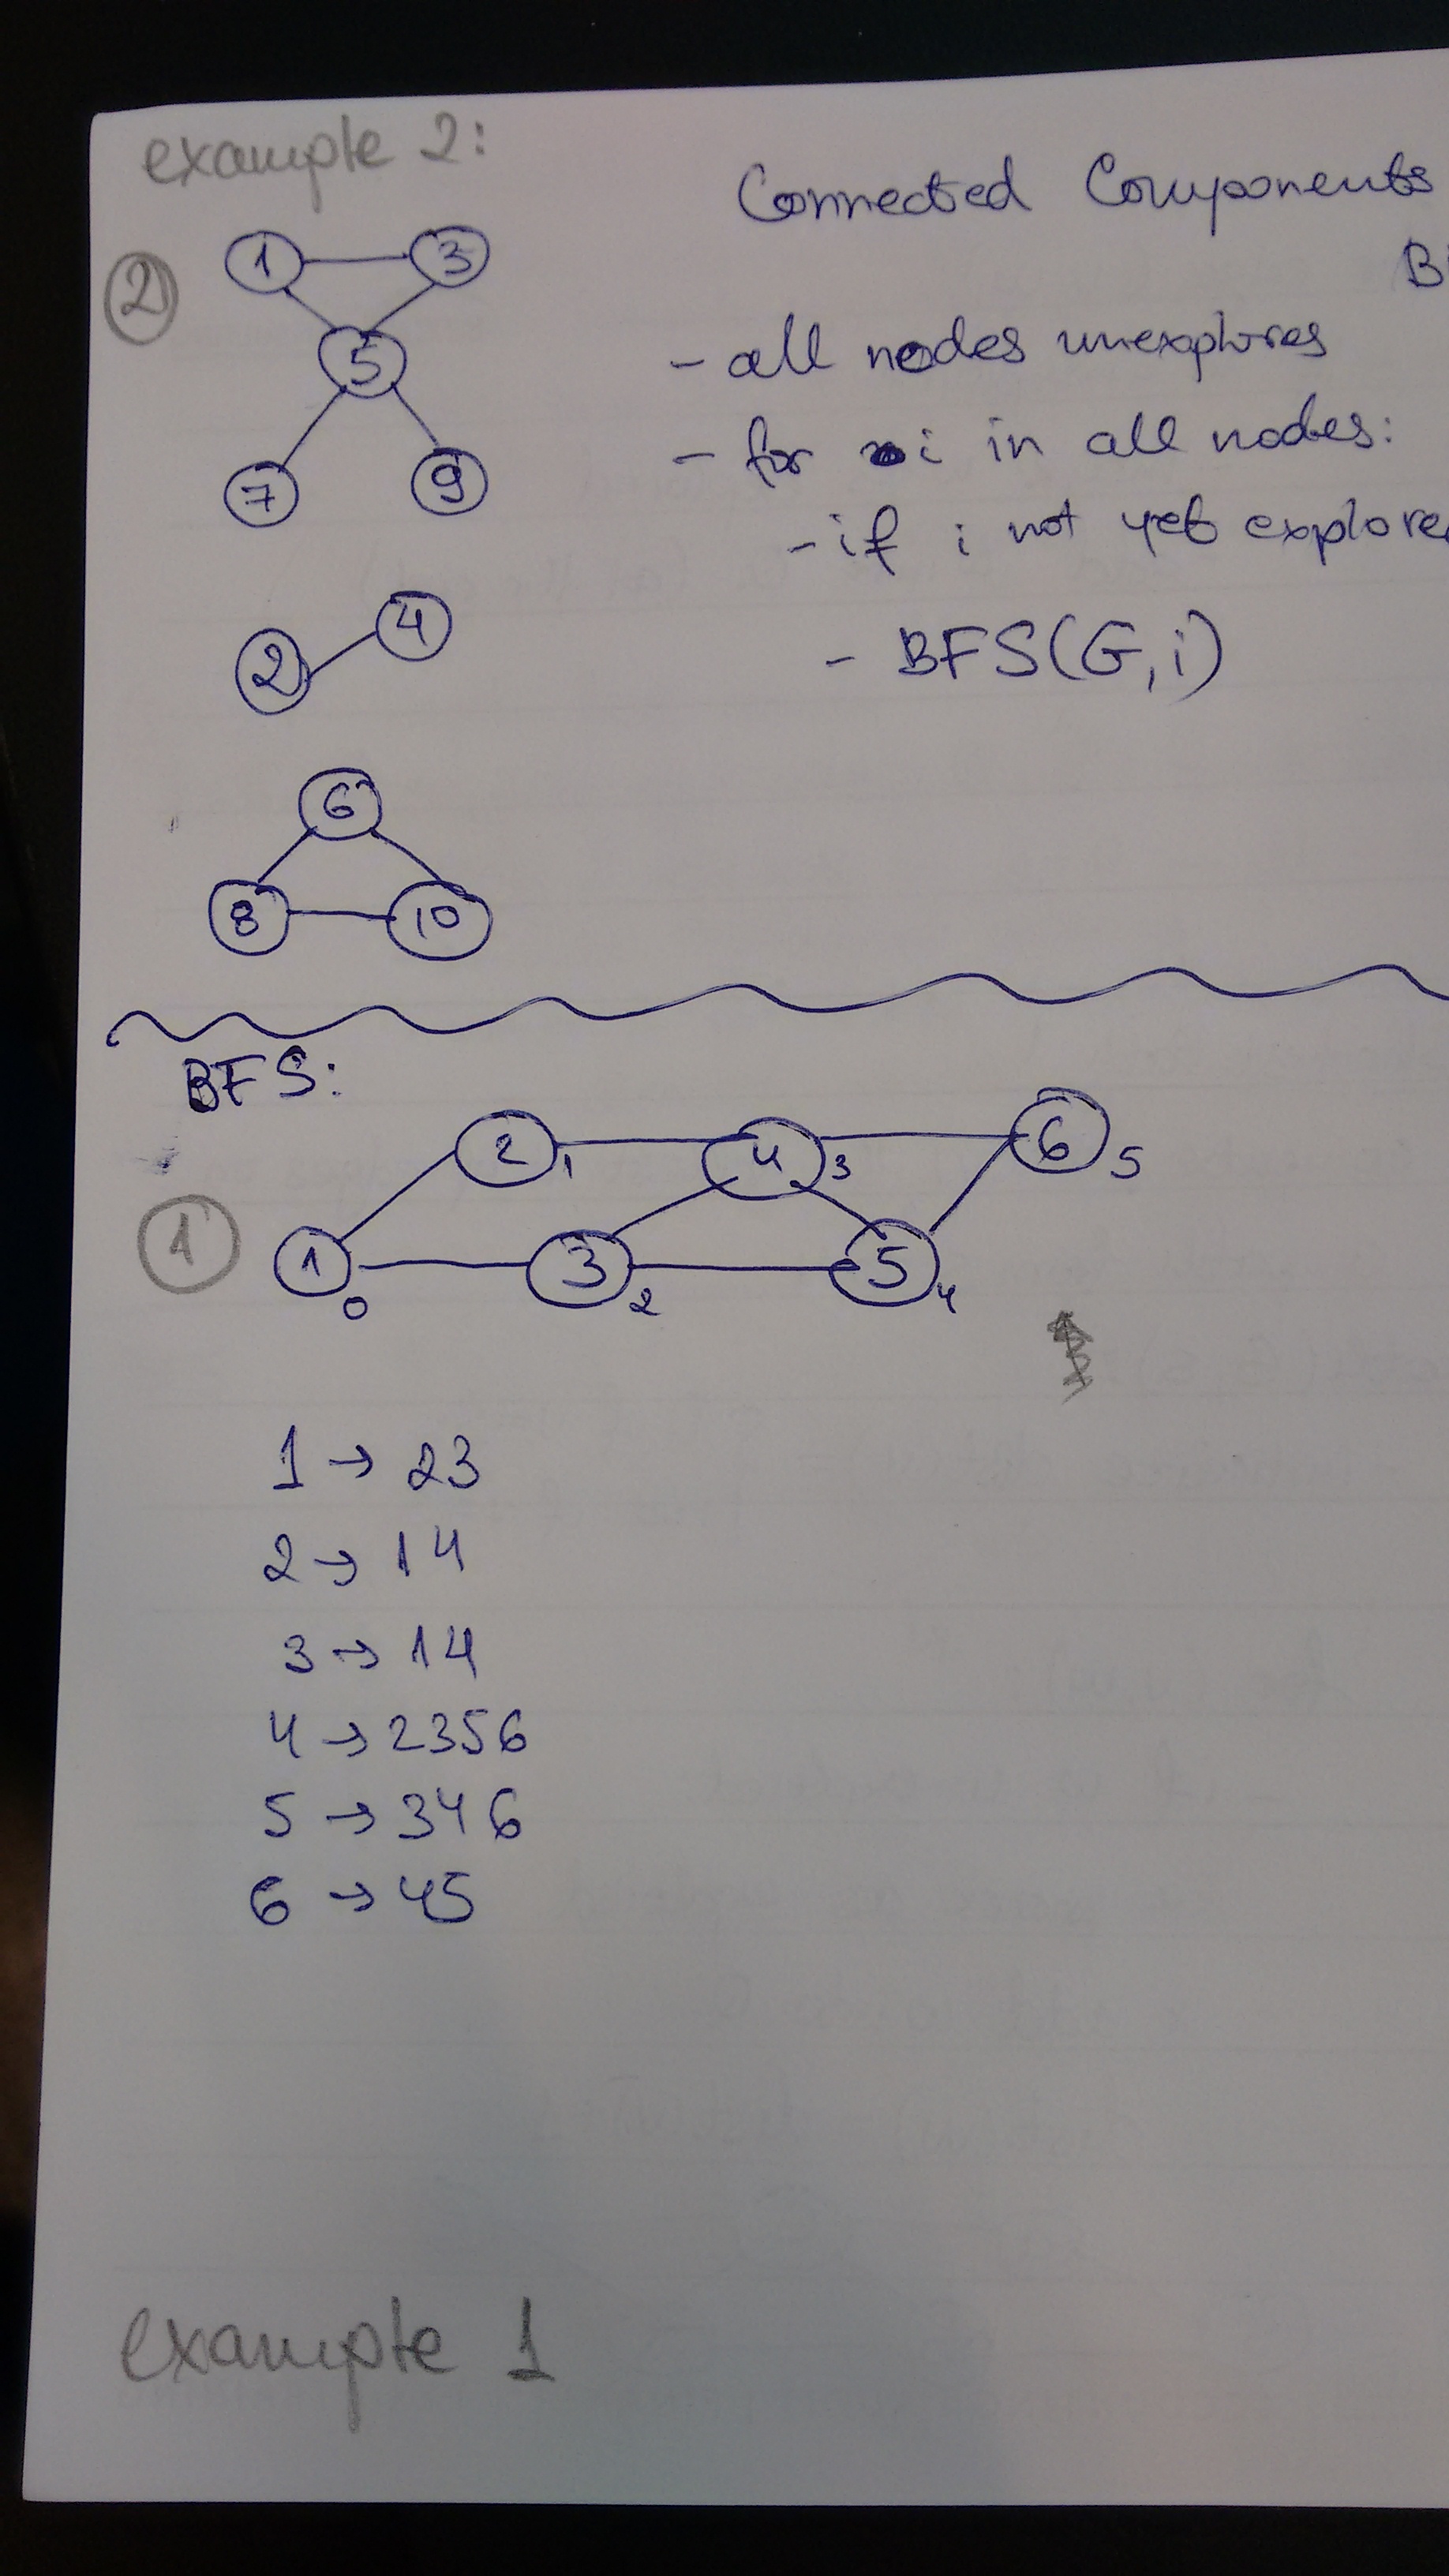 example 2:
Connected Components
② 1 3
5
7 9
- all nodes unexplores
- for i in all nodes:
- if i not yet explore
- BFS(G,i)
2 4
6
8 10
BFS:
2 1 4 3 6 5
① 1 0 3 2 5 4
1 → 23
2 → 14
3 → 14
4 → 2356
5 → 346
6 → 45
example 1